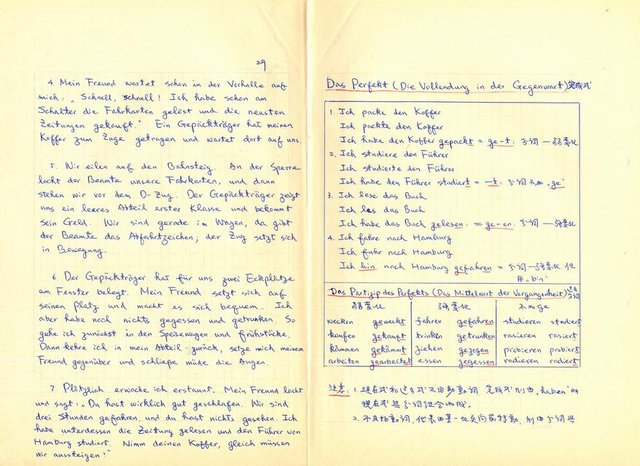 29
4. Mein Freund wartet schon in der Vorhalle auf
mich: „Schnell, schnell! Ich habe schon am
Schalter die Fahrkarten gelöst und die neusten
Zeitungen gekauft." Ein Gepäckträger hat meinen
Koffer zum Zuge getragen und wartet dort auf uns
5. Wir eilen auf den Bahnsteig. An der Sperre
locht der Beamte unsere Fahrkarten, und dann
stehen wir vor dem D-Zug. Der Gepäckträger zeigt
uns ein leeres Abteil erster Klasse und bekommt
sein Geld. Wir sind gerade im Wagen, da gibt
der Beamte das Abfahrtzeichen, der Zug setzt sich
in Bewegung.
6. Der Gepäckträger hat für uns zwei Eckplätze
am Fenster belegt. Mein Freund setzt sich auf
seinen Platz und macht es sich bequem. Ich
aber habe noch nichts gegessen und getrunken. So
gehe ich zunächst in den Speisewagen und frühstücke.
Dann kehre ich in mein Abteil zurück, setze mich meinem
Freund gegenüber und schliesse müde die Augen
7. Plötzlich erwache ich erstaunt. Mein Freund lacht
und sagt: „Du hast wirklich gut geschlafen. Wir sind
drei Stunden gefahren, und du hast nichts gesehen. Ich
habe unterdessen die Zeitung gelesen und den Führer von
Hamburg studiert. Nimm deinen Koffer, gleich müssen
wir aussteigen!"
Das Perfekt (Die Vollendung in der Gegenwart) 完成式
1. Ich packe den Koffer
Ich packte den Koffer
Ich habe den Koffer gepackt = ge-t: 分詞一弱變化
2. Ich studiere den Führer
Ich studierte den Führer
Ich habe den Führer studiert = -t: 分詞不加 „ge"
3. Ich lese das Buch
Ich las das Buch
Ich habe das Buch gelesen: = ge-en: 分詞一強變化
4. Ich fahre nach Hamburg
Ich fuhr nach Hamburg
Ich bin nach Hamburg gefahren = 分詞一強變化 但
用 „bin"
Das Partizip des Perfekts (Das Mittelwort der Vergangenheit) 過去分詞
弱變化 強變化 不加 ge
wecken geweckt fahren gefahren studieren studiert
kaufen gekauft trinken getrunken rasieren rasiert
kämmen gekämmt ziehen gezogen probieren probiert
arbeiten gearbeitet essen gegessen radieren radiert
注意: 1. 現在式和過去式不用助動詞, 完成式則由 „haben" 的
現在式與分詞組合而成.
2. 不及物動詞, 代表由某一地